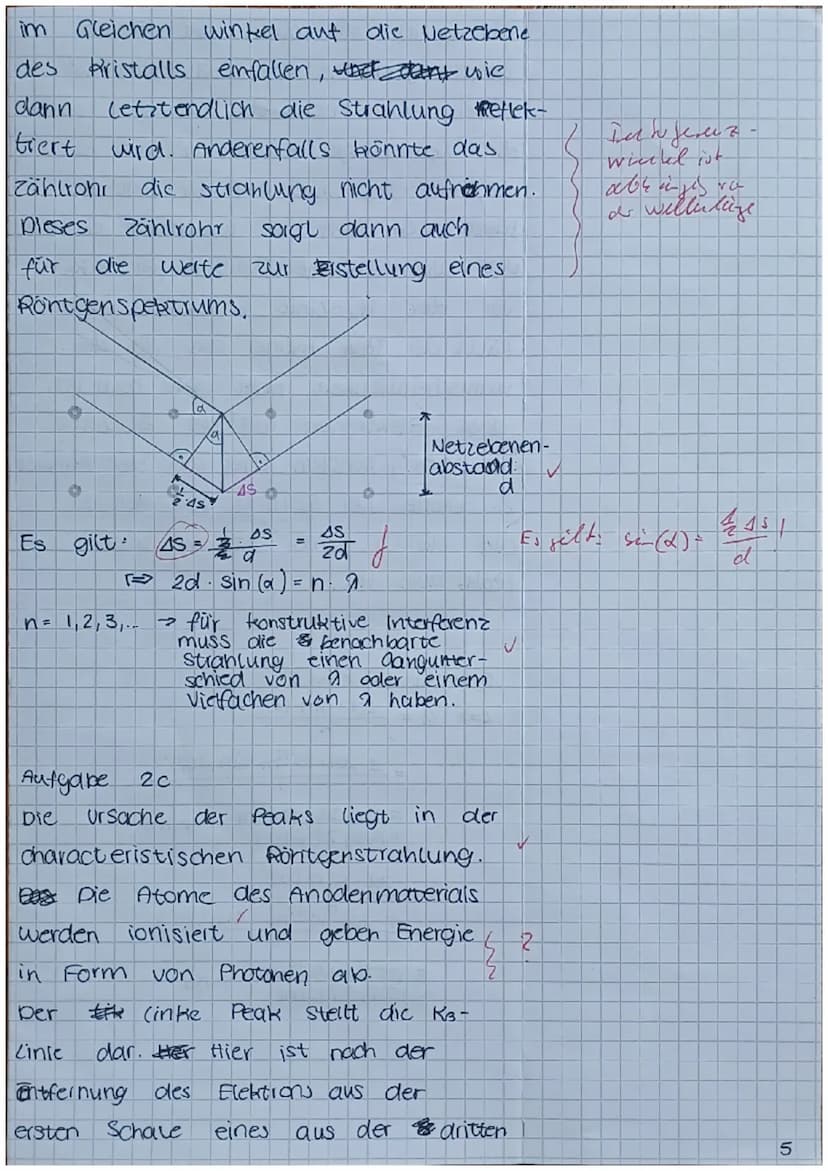 im Gleichen winkel auf die Netzebene
des Kristalls einfallen, wie
dann letztendlich die Strahlung reflek-
tiert wird. Anderenfalls könnte das
Zählrohr die strahlung nicht aufnehmen.
Dieses Zählrohr sorgt dann auch
für die Werte zur Erstellung eines
Röntgenspektrums.
Interferenz-
winkel ist
abhängig von
der Wellenlänge
α
α
Netzebenen-
abstand:
d
½·Δs
Δs
Es gilt: Δs = ½·Δs/d = Δs/2d f
Es gilt: sin(α) = ½Δs/d !
⇒ 2d · sin(α) = n · λ
n = 1,2,3,... → für konstruktive Interferenz
muss die benachbarte
Strahlung einen Gangunter-
schied von λ oder einem
Vielfachen von λ haben.
Aufgabe 2c
Die Ursache der Peaks liegt in der
characteristischen Röntgenstrahlung.
Die Atome des Anodenmaterials
werden ionisiert und geben Energie ?
in Form von Photonen ab.
Der linke Peak stellt die Kβ-
Linie dar. Hier ist nach der
Entfernung des Elektrons aus der
ersten Schale eines aus der dritten
5